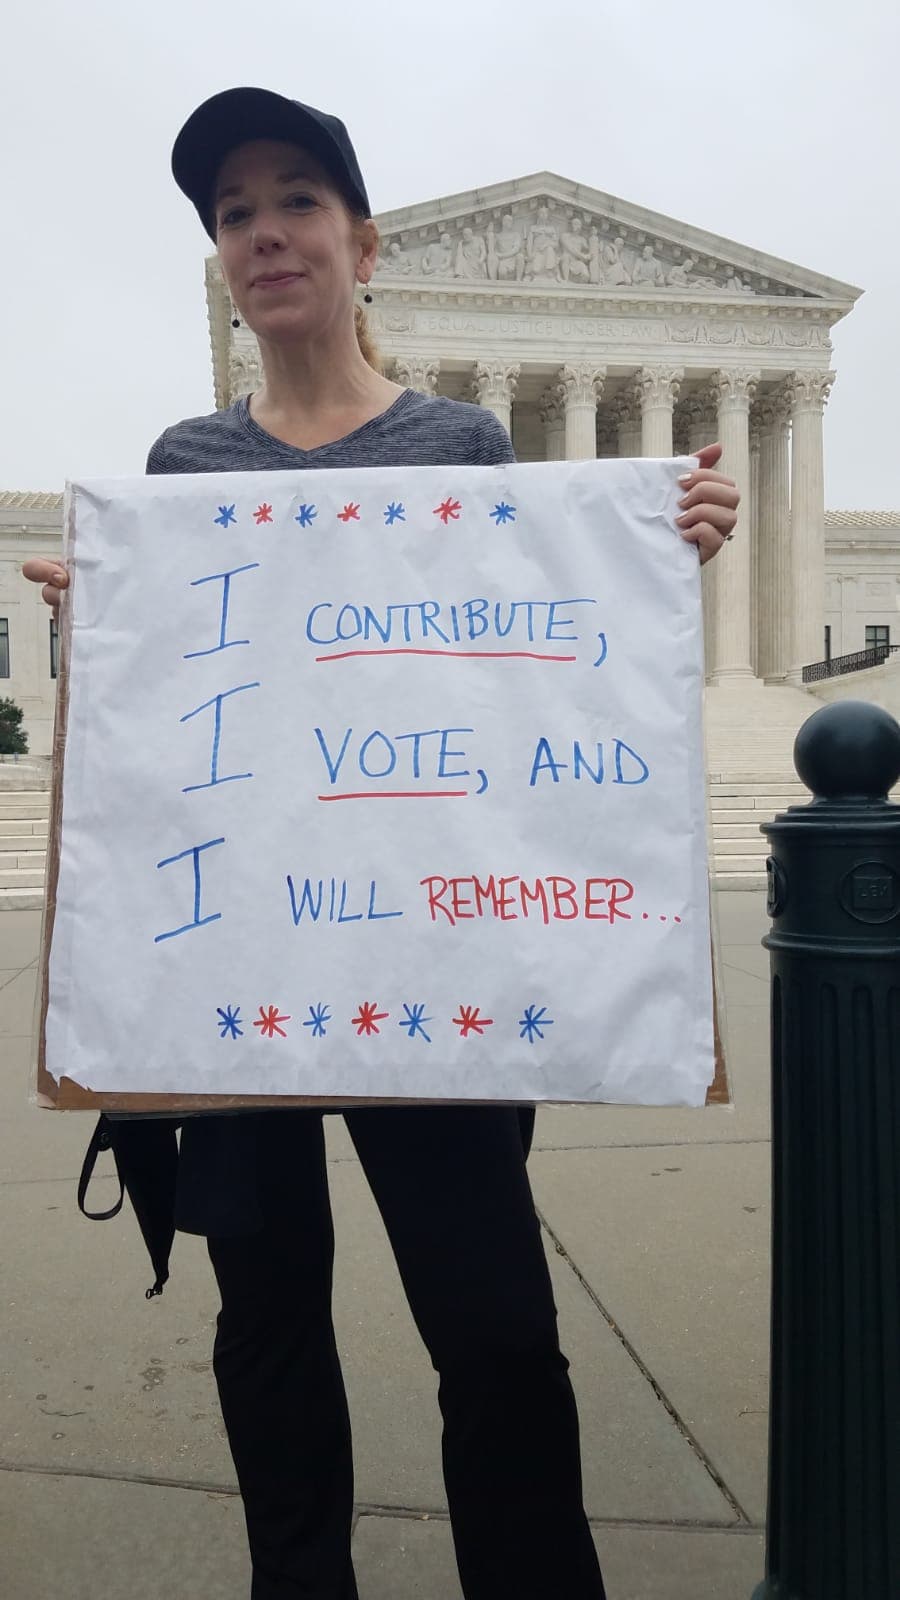 EQUAL JUSTICE UNDER LAW
* * * * * * *
I CONTRIBUTE,
I VOTE, AND
I WILL REMEMBER...
* * * * * * *